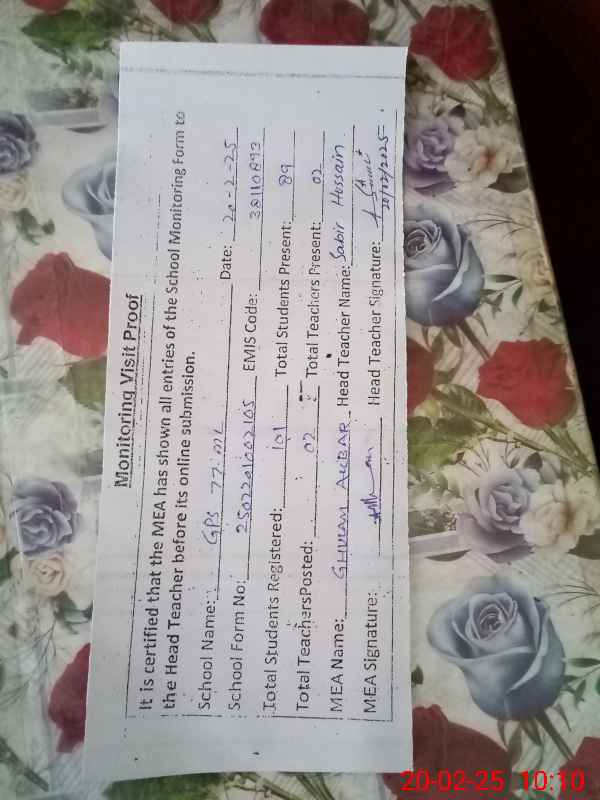 Monitoring Visit Proof
It is certified that the MEA has shown all entries of the School Monitoring Form to
the Head Teacher before its online submission.
School Name: GPS 77 ML Date: 20-2-25
School Form No: 2502201002105 EMIS Code: 38110893
Total Students Registered: 101 Total Students Present: 89
Total TeachersPosted: 02 Total Teachers Present: 02
MEA Name: GHULAM AKBAR Head Teacher Name: Sabir Hossain
MEA Signature: Head Teacher Signature:
20/02/2025
20-02-25 10:10